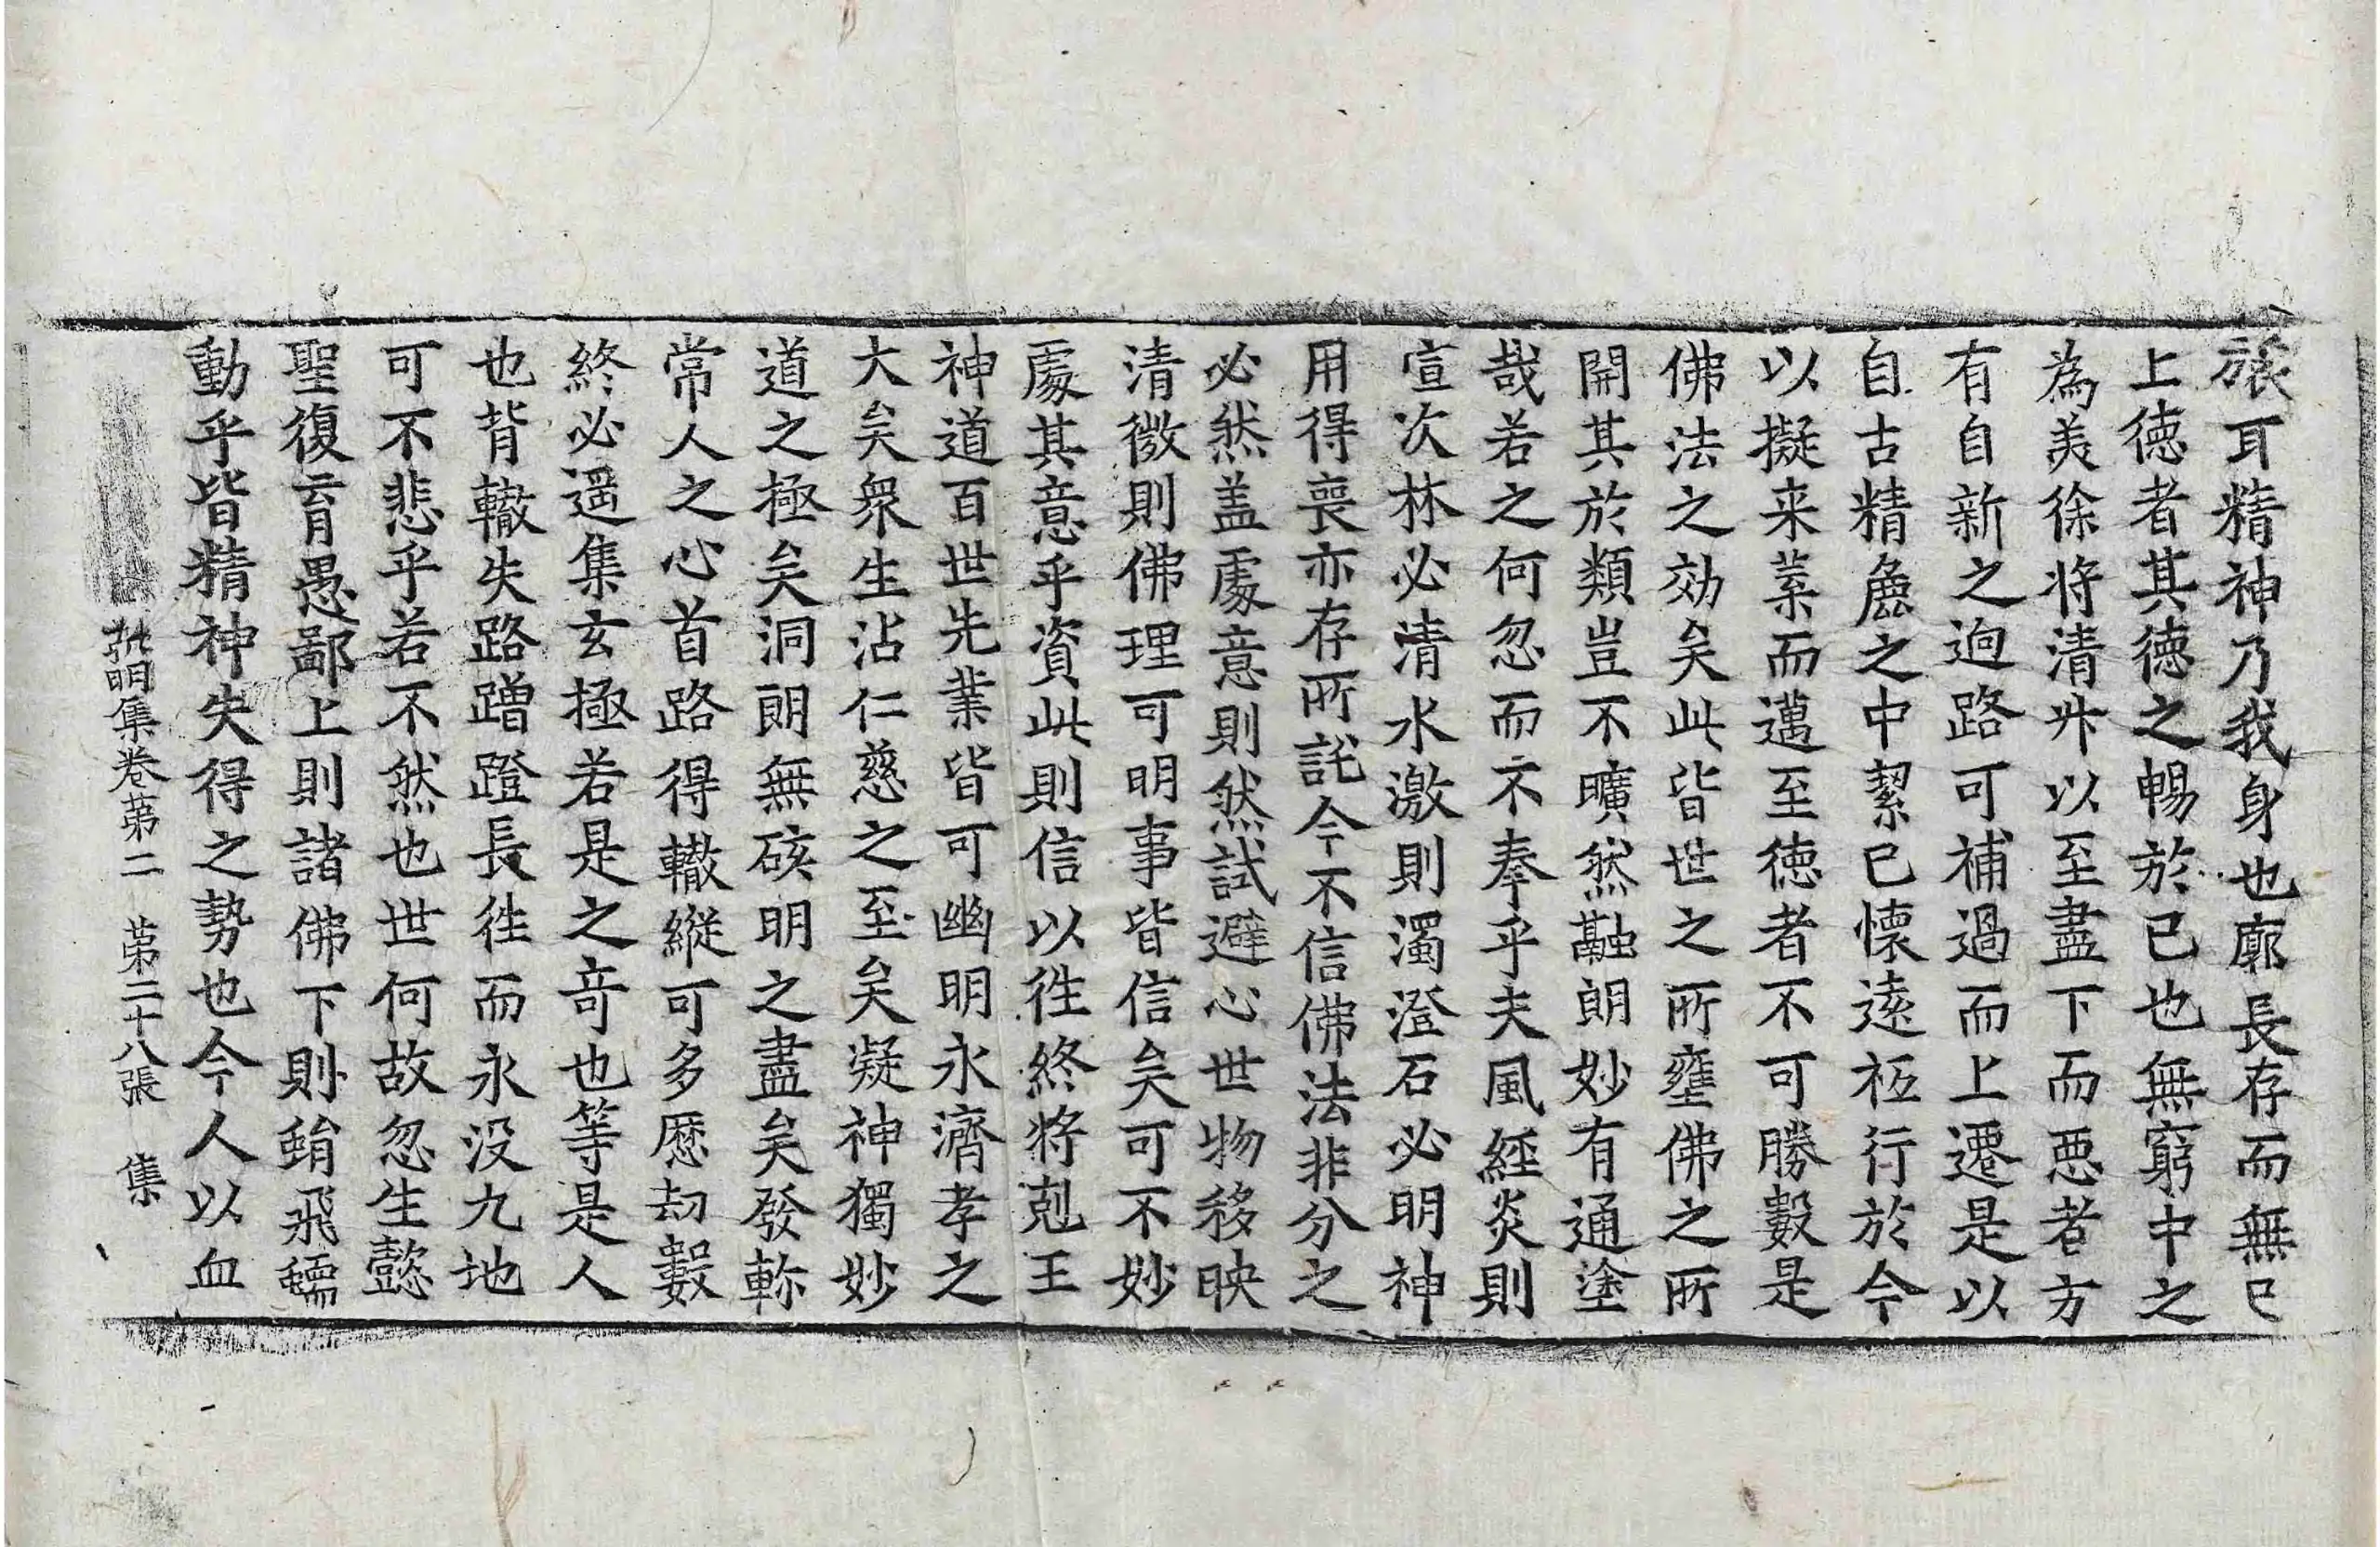 旅耳精神乃我身也廓長存而無已
上徳者其徳之暢於已也無窮中之
為美徐將清升以至盡下而悪者方
有自新之逈路可補過而上遷是以
自古精麁之中絜已懷逺祗行於今
以擬来業而邁至徳者不可勝數是
佛法之効矣此皆世之所壅佛之所
開其於類豈不曠然融朗妙有通塗
哉若之何忽而不奉乎夫風經炎則
宣次林必清水激則濁澄石必明神
用得喪亦存所託今不信佛法非分之
必然盖處意則然試避心世物移映
清微則佛理可明事皆信矣可不妙
處其意乎資此則信以徃終將剋王
神道百世先業皆可幽明永濟孝之
大矣衆生沾仁慈之至矣凝神獨妙
道之極矣洞朗無硋明之盡矣發軫
常人之心首路得轍縱可多歷劫數
終必逕集玄極若是之竒也等是人
也背轍失路蹭蹬長徃而永没九地
可不悲乎若不然也世何故忽生懿
聖復育愚鄙上則諸佛下則蜎飛蠕
動乎皆精神失得之勢也今人以血
弘明集卷第二 第二十八張 集